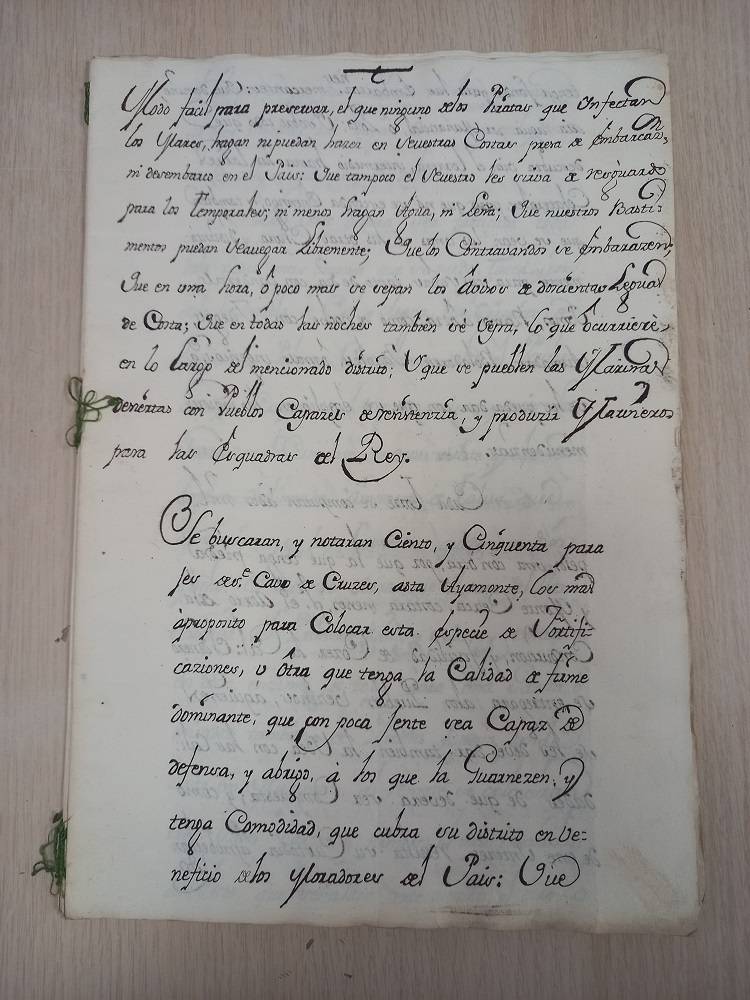 Modo facil para preservar, el que ninguno de los Piratas que Infectan
los Mares, hagan ni puedan hazer en Nuestras Costas presa de Embarcazn,
ni desembarco en el Pais: Que tampoco el Nuestro les sirva de resguardo
para los Temporales; ni menos hagan Agua, ni Leña; Que nuestros Basti=
mentos puedan Navegar Libremente; Que los Contravandos se Embarazen;
Que en una hora, ô poco mas se sepan los Avisos de doscientas Leguas
de Costa; Que en todas las noches tambien se sepa, lo que ôcurriere,
en lo Largo del mencionado distrito; Y que se pueblen las Marinas
desiertas con Pueblos Capazes de resistenzia, y produzir Marineros
para las Esquadras del Rey.
Se buscaran, y notaran Ciento, y Cinquenta para
jes desde Cavo de Cruzes, asta Ayamonte, los mas
àproposito para Colocar esta Especie de Fortifi=
caziones, ù Ôtra que tenga la Calidad de firme
dominante, que con poca jente sea Capaz de
defensa, y abrigo, à los que la Guarnezen, y
tenga Comodidad, que cubra su distrito en be=
neficio de los Moradores del Pais: Que